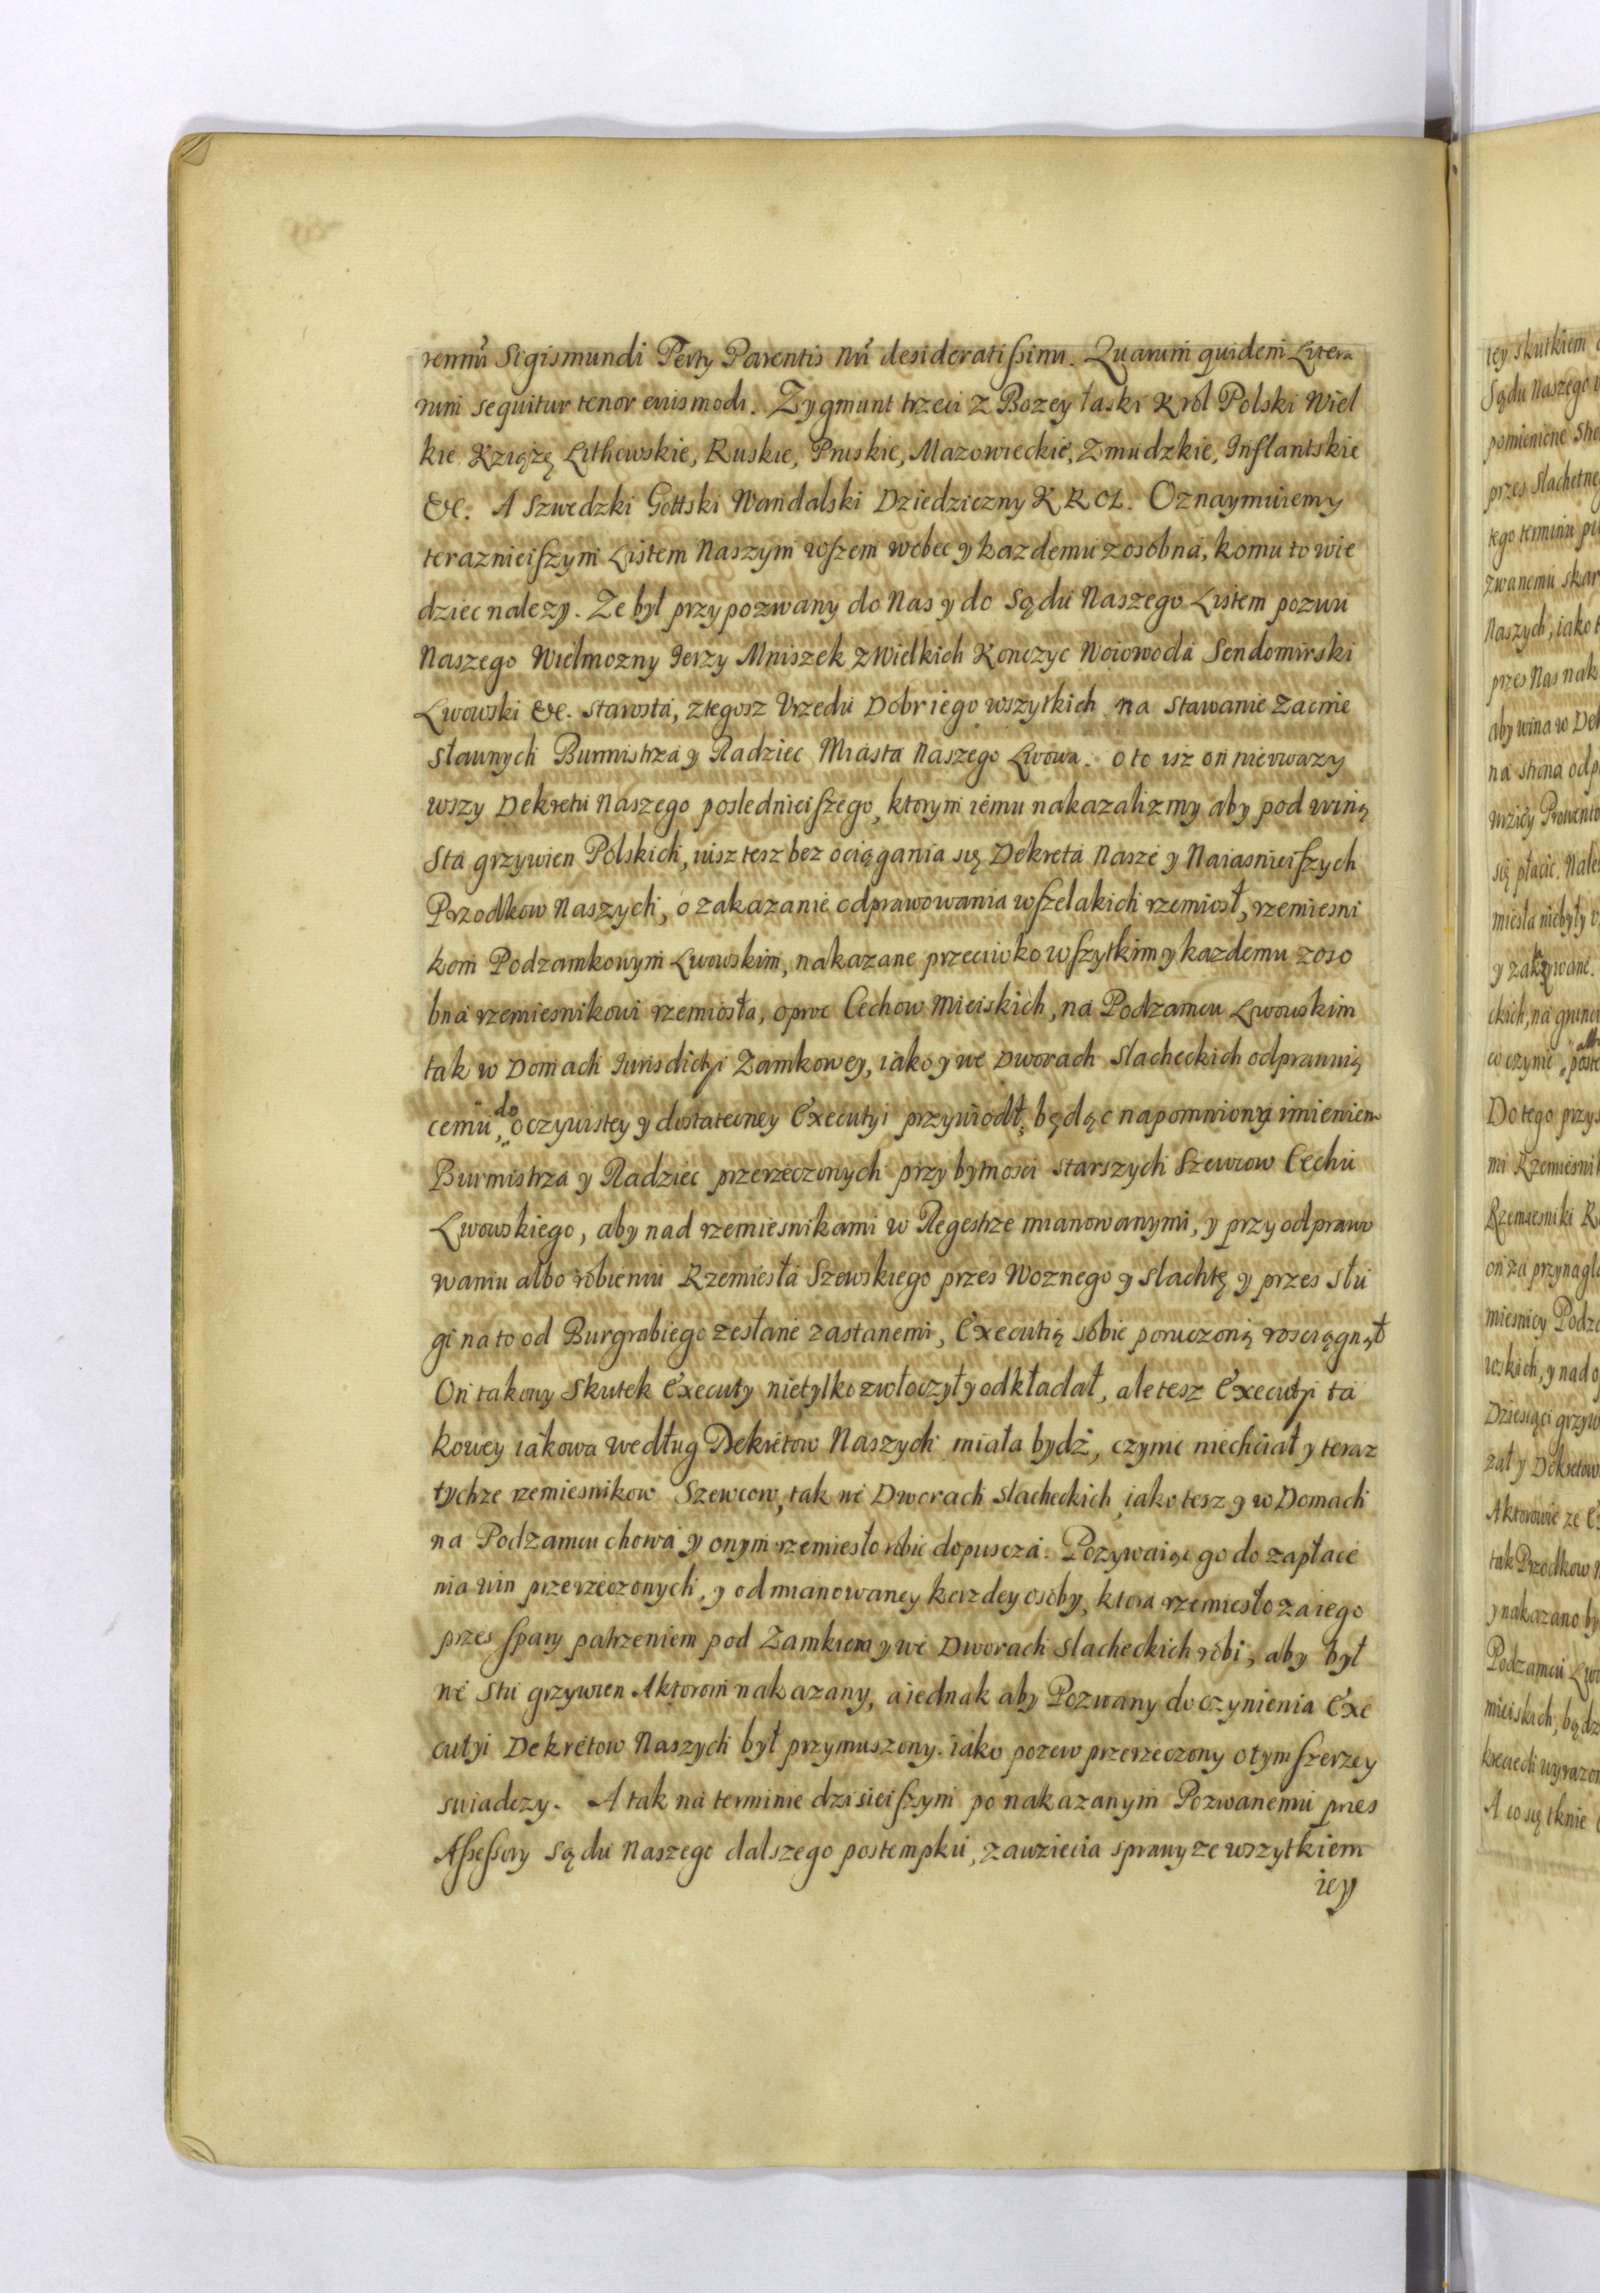 rennũ Sigismundi Terty Parentis Nrĩ desideratiſsimi. Quarum quidem Litera
rum sequitur tenor eiusmodi. Zygmunt trzeci z Bozey łaski Krol Polski Wiel
kie Xziązę Lithewskie, Ruskie, Pruskie, Mazowieckie, Zmudzkie, Inflantskie
&c. A Szwedzki Gottski Wandalski Dziedziczny KROL. Oznaymuiemy
terazniejſzym Listem Naszym wſzem wobec y kazdemu zosobna, komu to wie
dziec nalezy. Ze był przypozwany do Nas y do Sądu Naszego Listem pozwu
Naszego Wielmozny Ierzy Mniszek z Wielkich Konczyc Woiowoda Sendomirski
Lwowski &c. Starosta, ztegosz Vrzedu Dobr iego wszytkich na stawanie Zacnie
sławnych Burmistrza y Radziec Miasta Naszego Lwowa. o to isz on nieuwazy
wszy Dekretu Naszego poslednieiſzego, ktorym iemu nakazalizmy aby pod winą
Sta grzywien Polskich, iusz tesz bez ociągania się Dekreta Nasze y Naiasnieiſzych
Przodkow Naszych, o zakazanie odprawowania wſzelakich rzemiosł, rzemiesni
kom Podzamkowym Lwowskim, nakazane przeciwko wſzytkim y kazdemu zoso
bna rzemiesnikowi rzemiosła, oproc Cechow Mieiskich, na Podzamcu Lwowskim
tak w Domach Iurisdictyi Zamkowey, iako y we Dworach Slacheckich odprawuią
cemu, do oczywistey y dostatecney Executyi przywiodł, będąc napomniony imieniem
Burmistrza y Radziec przerzeczonych przy bytnosci starszych Szewcow Cechu
Lwowskiego, aby nad rzemiesnikami w Regestrze mianowanymi, y przy odprawo
waniu albo robieniu Rzemiesła Szewskiego przes Woznego y Slachtę y przes słu
gi na to od Burgrabiego zesłane zastanemi, Executią sobie poruczoną rosciągnął
On takowy Skutek Executy nietylko zwłoczył y odkładał, ale tesz Executyi ta
kowey iakowa według Dekretow Naszych miała bydź, czynic niechciał y teraz
tychze rzemiesnikow Szewcow, tak we Dworach Slacheckich, iako tesz y w Domach
na Podzamcu chowa y onym rzemiesło robic dopuscza. Pozywaiąc go do zapłace
nia win przerzeczonych, y od mianowaney kazdey osoby, ktora rzemiesło za iego
przes ſpary patrzeniem pod Zamkiem y we Dworach Slacheckich robi, aby był
we Stu grzywien Aktorom nakazany, a iednak aby Pozwany do czynienia Exe
cutyi Dekretow Naszych był przymuszony. iako pozew przerzeczony o tym ſzerzey
swiadczy. A tak na terminie dzisieiſzym po nakazanym Pozwanemu przes
Aſseſsory Sądu Naszego dalszego postempku, zawziecia sprawy ze wszytkiem
iey